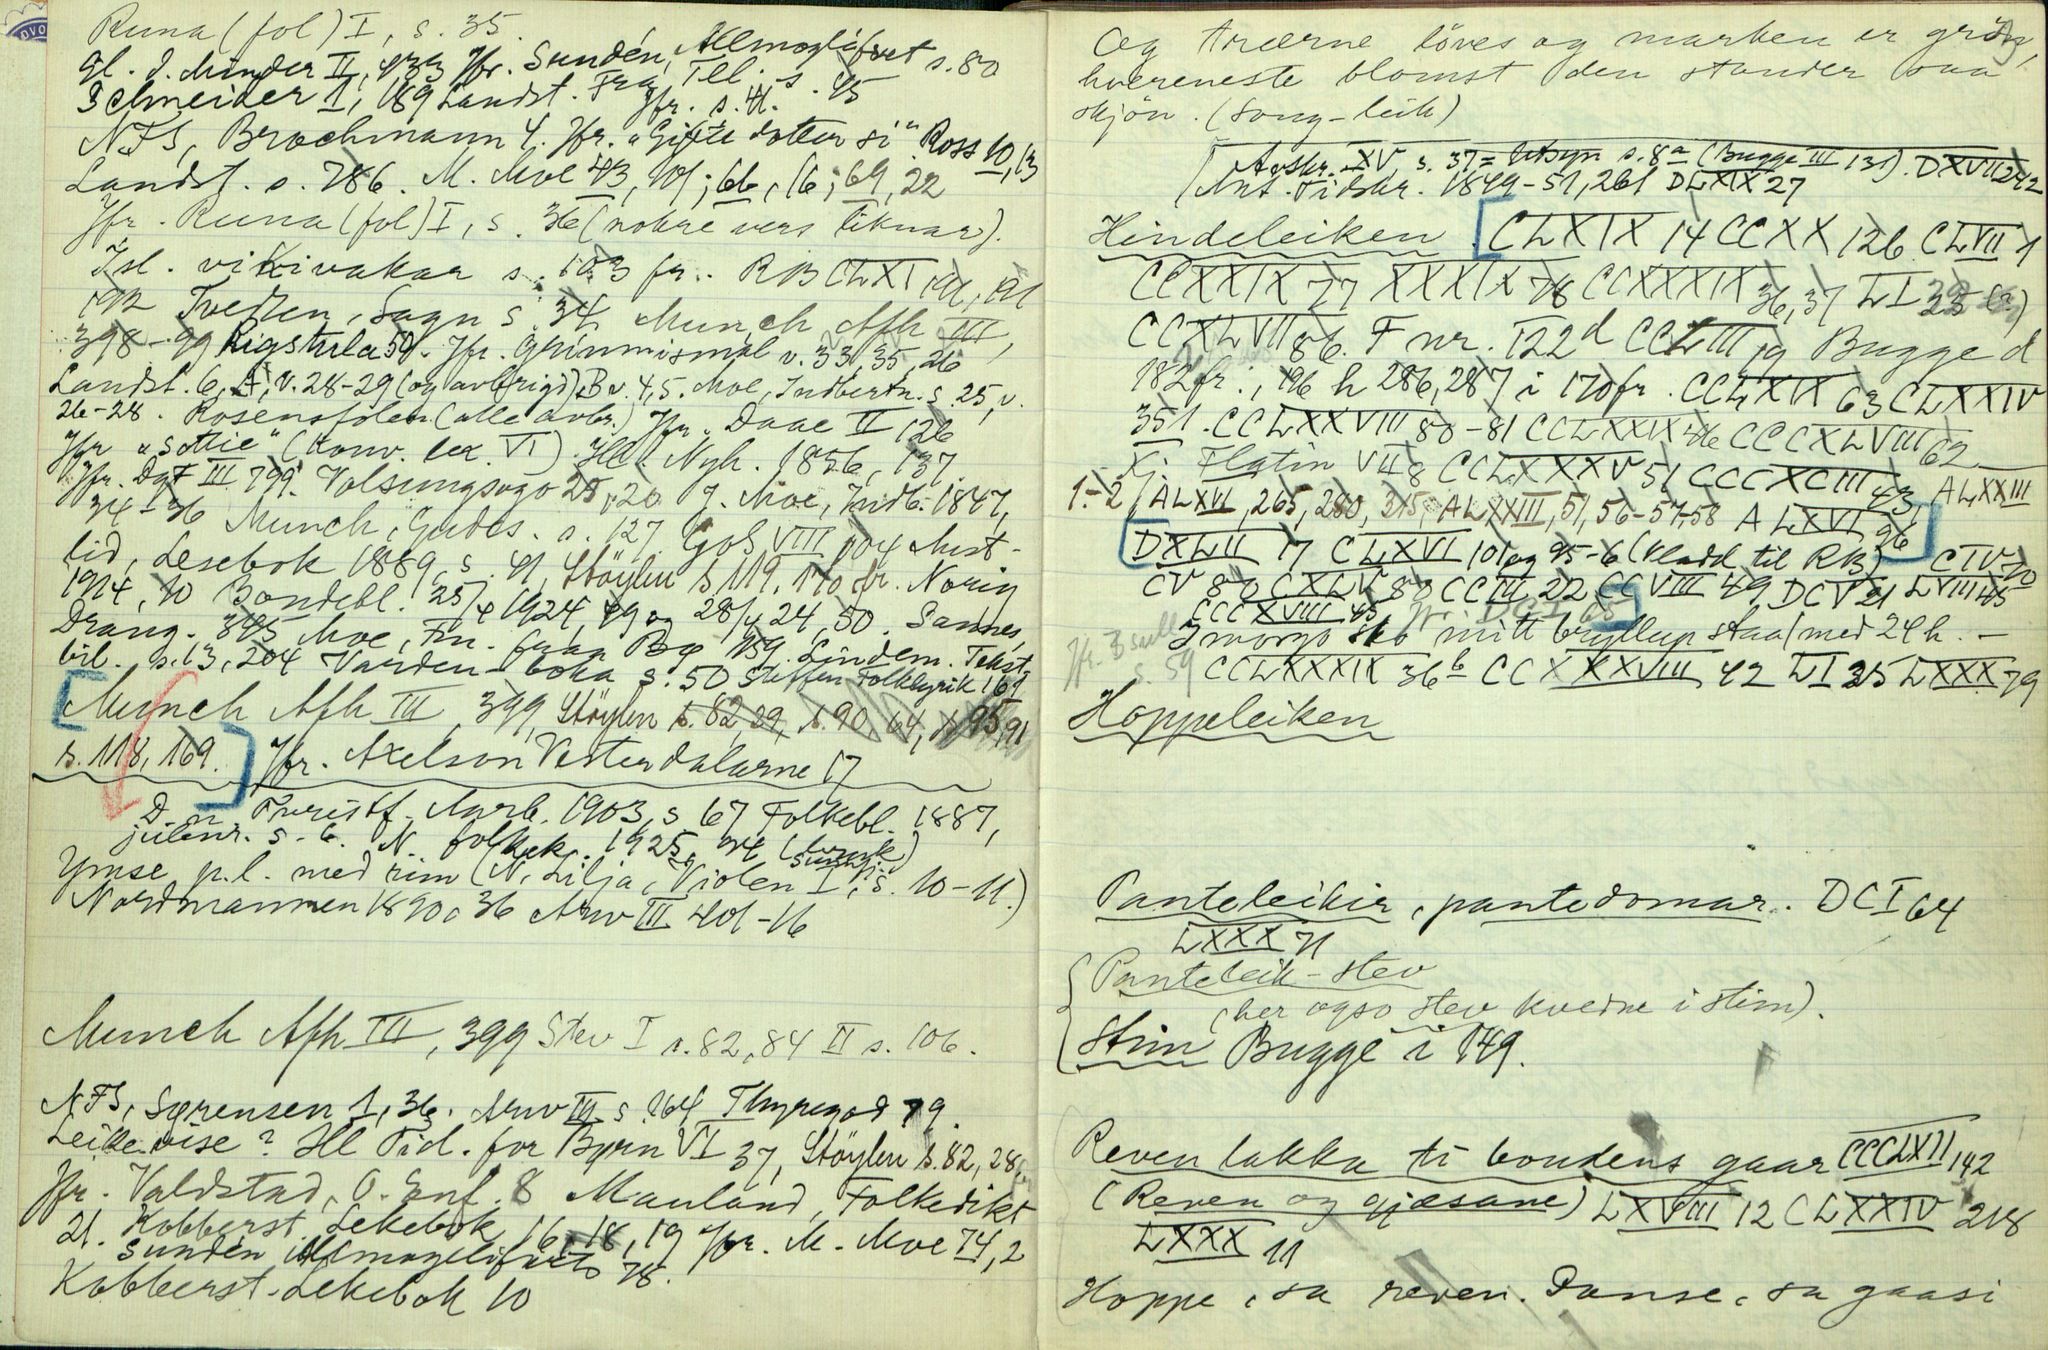 Runa (fol) I, s. 35.
gl. d. Minder II, 433 Jfr. Sundén, Allmogelifvet s. 80
Schneider I, 189 Landst. Frg. Till. s. 45
Jfr. s. 41.
NFS, Brochmann 4. Jfr. "Gifte dotter si" Ross 10, 13
Landst. s. 786. M. Moe 43, 101; 66, 16; 69, 22
Jfr. Runa (fol) I, s. 36 (nokre vers liknar).
Isl. vikivakar s. 103 fr. RB CLXI 191, 191
192 Tvedten, Sagn s. 34, Munch Afh III,
398-99 Rigstula 50. Jfr. Grimnismál v. 33, 35, 26
Landst. 6, A, v. 28-29 (og avbrigd), B v. 4, 5. Moe, Indbertn. s. 25, v.
26-28. Rosensfolen (alle avbr.) Jfr. Daae II 126
Jfr "Sottie" (Konv. lex. VI). Ill. Nyh. 1856, 137.
Jfr. DgF III 799. Volsungsogo 25, 20 J. Moe, Indb. 1847,
34-36 Munch, Gudes. s. 127. GoS VIII 104 Aust-
lid, Lesebok 1889, s. 41, Støylen s 119, 170 fr. Norig
1914, 10 Bondebl. 25/4 1924, 49 og 28/4 24, 50. Sannes,
Draug. 395 Moe, Fin. fraa Bø 159. Lindem. Tekst-
bil. s. 13, 204 Varden-boka s. 50 Steffen Folklyrik 169
Munch Afh III, 399, Støylen s. 82, 29, s. 90, 64, s 95, 91
s. 118, 169. Jfr. Axelson Vesterdalarne 17
D. n. Turistf. Aarb. 1903, s 67 Folkebl. 1887,
julenr. s. 6. N. folkek. 1925, 74 (svensk)
Ymse p.l. med rim (N. Lilja, Violen I, s. 10-11.)
Nordmannen 1890, 36 Arw III 401-16
Munch Afh III, 399 Stev I s. 82, 84 II s. 106.
NFS, Sørensen 1, 36. Arw III s. 164 Thyregod 79.
Leikevise? Ill Tid. for Børn VI 37, Støylen s. 82, 28
Jfr. Valdstad, O. Enf. 8 Mauland, Folkedikt
21. Kobberst. Lekebok 16, 18, 19 Jfr. M. Moe 74, 2
Sundén Allmogelifvet 78.
Kobberst. Lekebok 10
Og træerne løves og marken er grøn,
hvereneste blomst den stander saa
skjøn. (song-leik)
Avskr. XV, s. 37 = Utsyn s. 8a (Bugge III 131). DXVII 242
Ant. Tidskr. 1849-51, 261 DLXIX 27
Hindeleiken. CLXIX 14 CCXX 126 CLVII 1
CCXXIX 77 XXXIX 78 CCXXXIX 36, 37 LI 25 (?)
CCXLVII 86. F nr. 122d CCLIII 19 Bugge d
182 fr., 196 h 286, 287 i 170 fr. CCLXIX 63 CLXXIV
351. CCLXXVIII 80-81 CCLXXIX 46 CCCXLVIII 62
Kj. Flatin VII 8 CCLXXXV 51 CCCXCIII 43, ALXXIII
1-2, ALXVI, 265, 280, 315, ALXXIII, 51, 56-57-58 ALXVI 96
DXLII 17 CLXVI 101 og 95-6 (Vladd til RB) CIV 20
CV 80 CXLV 80 CCIII 22 CCVIII 49 DCV 21 LVIII 45
CCCXVIII 45 Jfr. DCI 65
Jfr. Bull s. 59
I morgo ska mitt bryllup staa (med 24 h. -
CCLXXXIX 36b CCXXXVIII 42 LI 25 LXXX 79
Hoppeleiken
Panteleikir, pantedomar. DCI 64
LXXX 71
Panteleik-stev
(her ogso stev kvedne i stim).
Stim Bugge i 149.
Reven lakka ti bondens gaar CCCLXII 142
(Reven og gjæsane) LXVIII 12 CLXXIV 218
LXXX 11
Hoppe, sa reven. Danse, sa gaasi